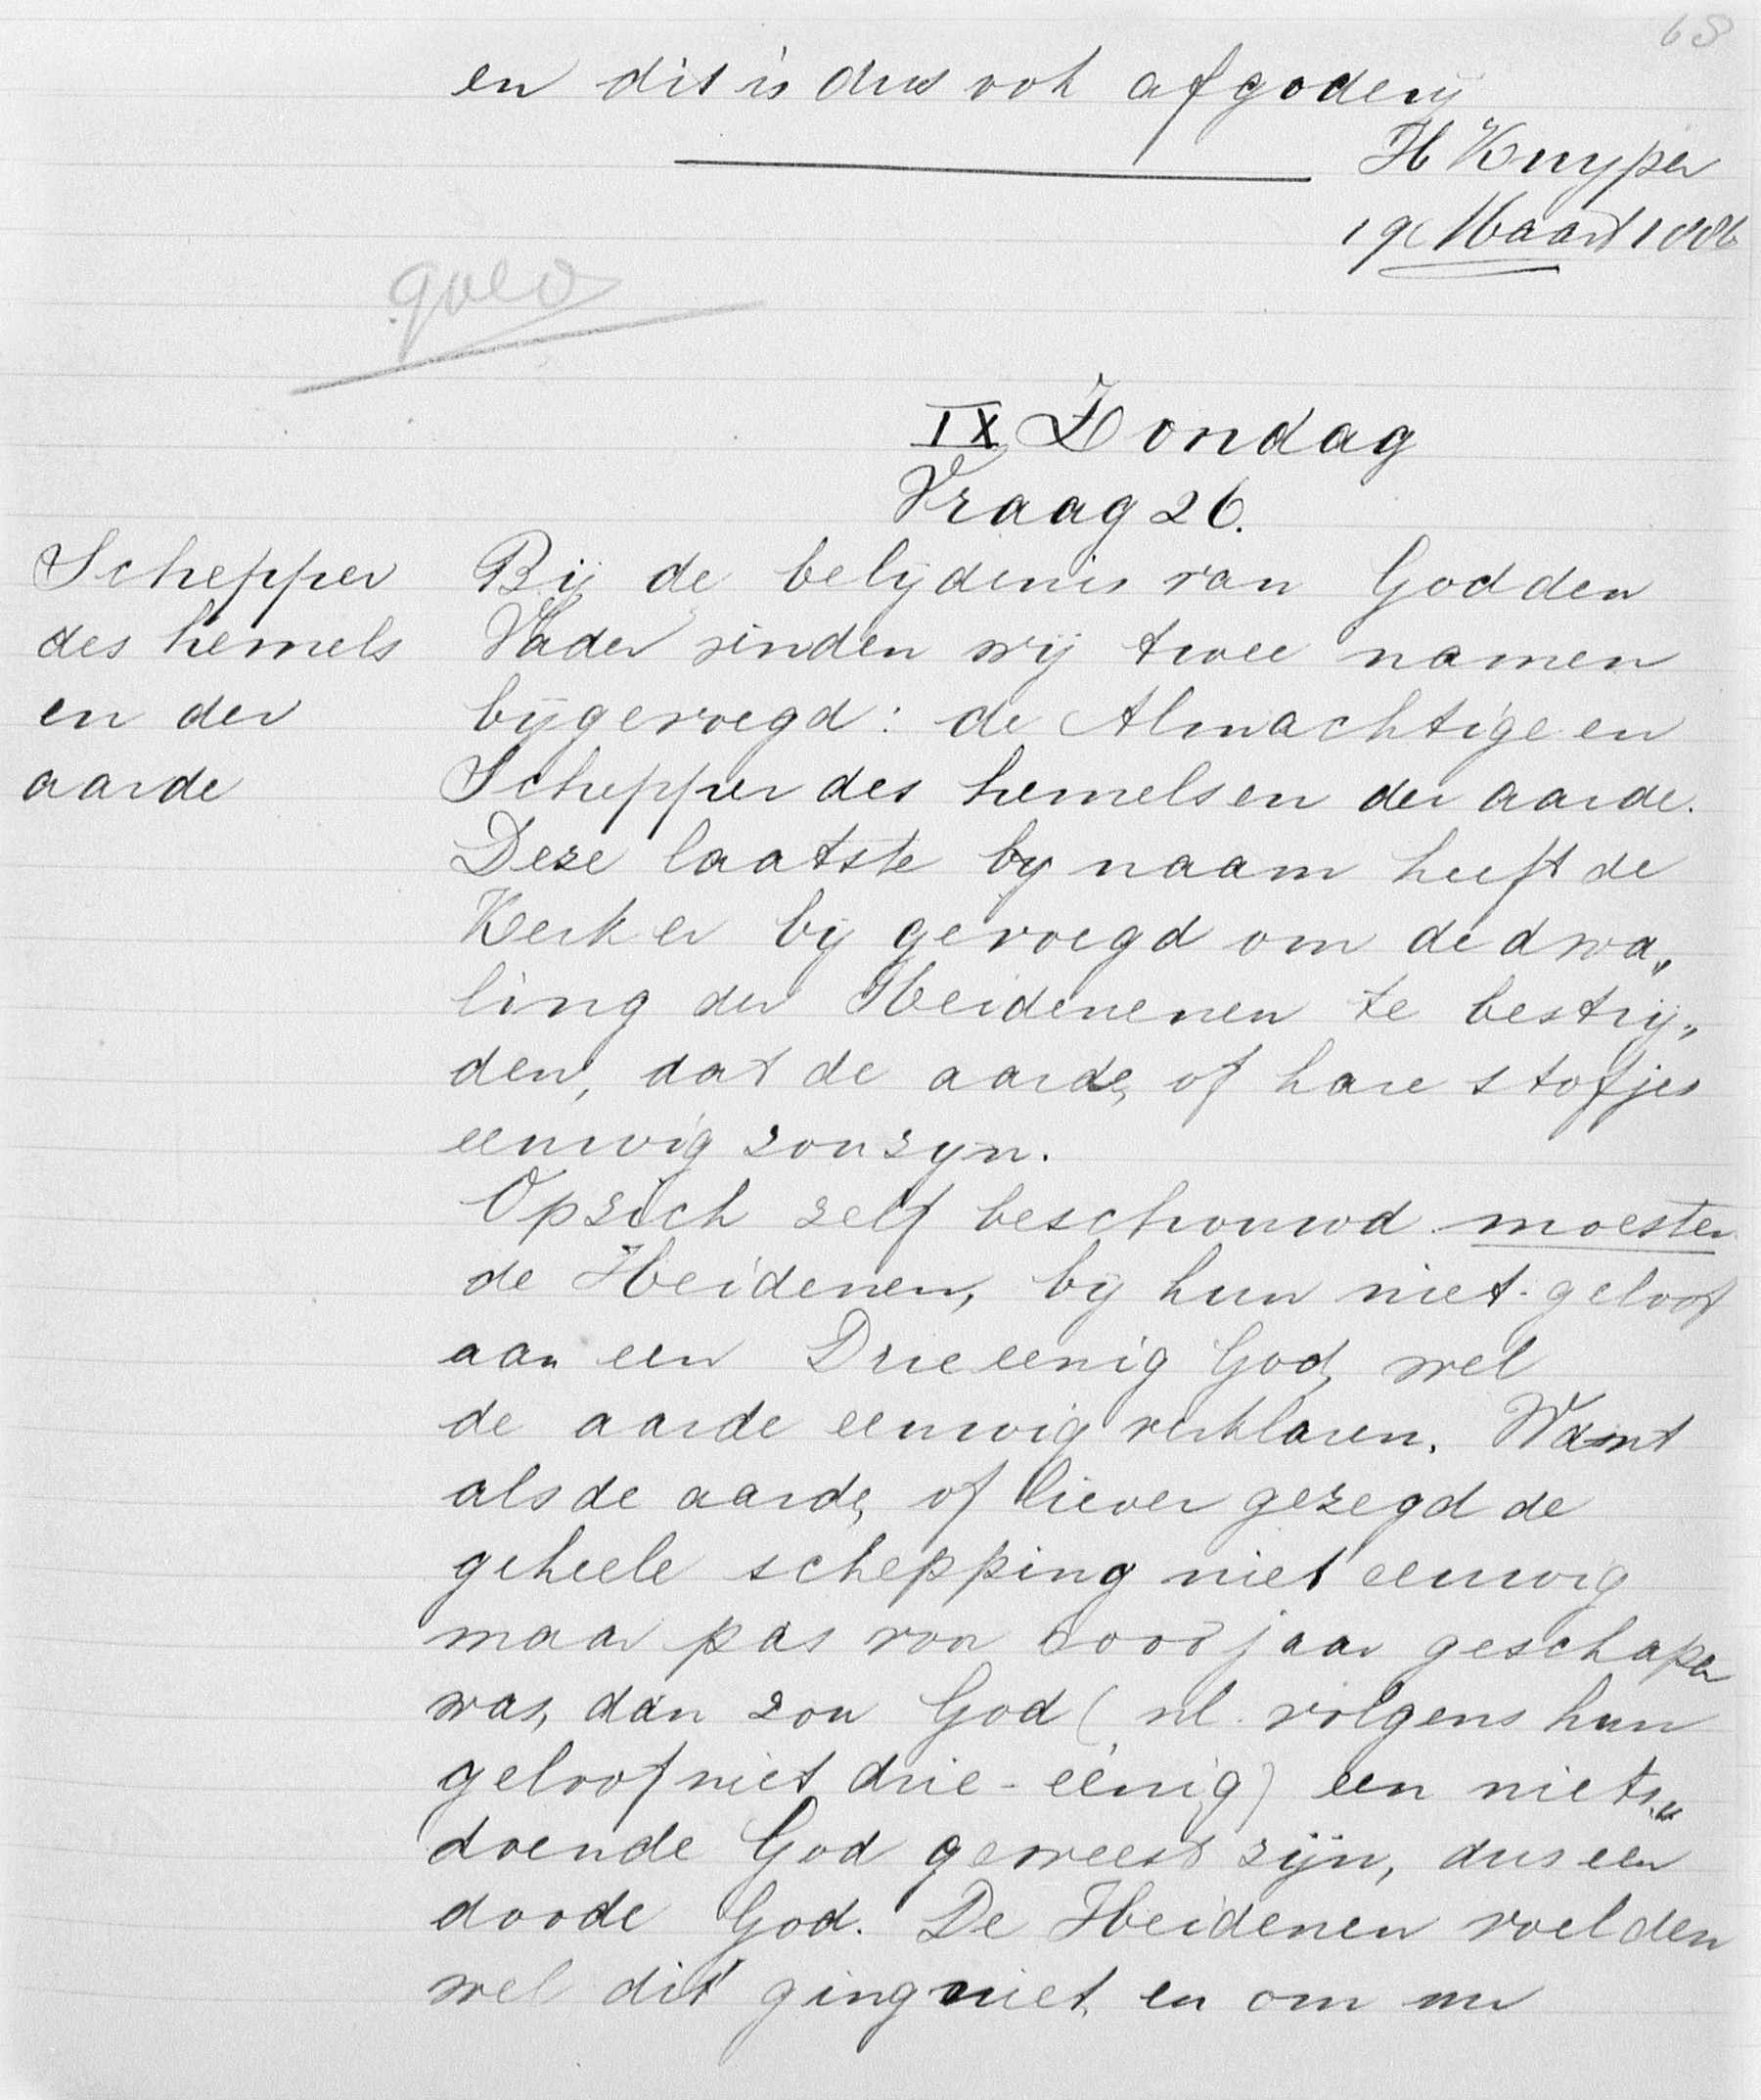 68
en dit is dus ook afgoderij
H Kuyper
19 Maart 1886
goed
IX Zondag
Vraag 26.
Schepper
des hemels
en der
aarde
Bij de belijdenis van God den
Vader vinden wij twee namen
bijgevoegd: de Almachtige en
Schepper des hemels en der aarde.
Deze laatste bij naam heeft de
Kerk er bij gevoegd om de dwa„
ling der Heidenenen te bestrij„
den, dat de aarde, of hare stofjes
eeuwig zou zijn.
Op zich zelf beschouwd moesten
de Heidenen, bij hun niet-geloof
aan een Drieeenig God, wel
de aarde eeuwig verklaren. Want
als de aarde, of liever gezegd de
geheele schepping niet eeuwig
maar pas voor 6000 jaar geschapen
was, dan zou God (nl. volgens hun
geloof niet drie-eénig) een niets„
doende God geweest zijn, dus een
doode God. De Heidenen voelden
wel dit ging niet, en om nu